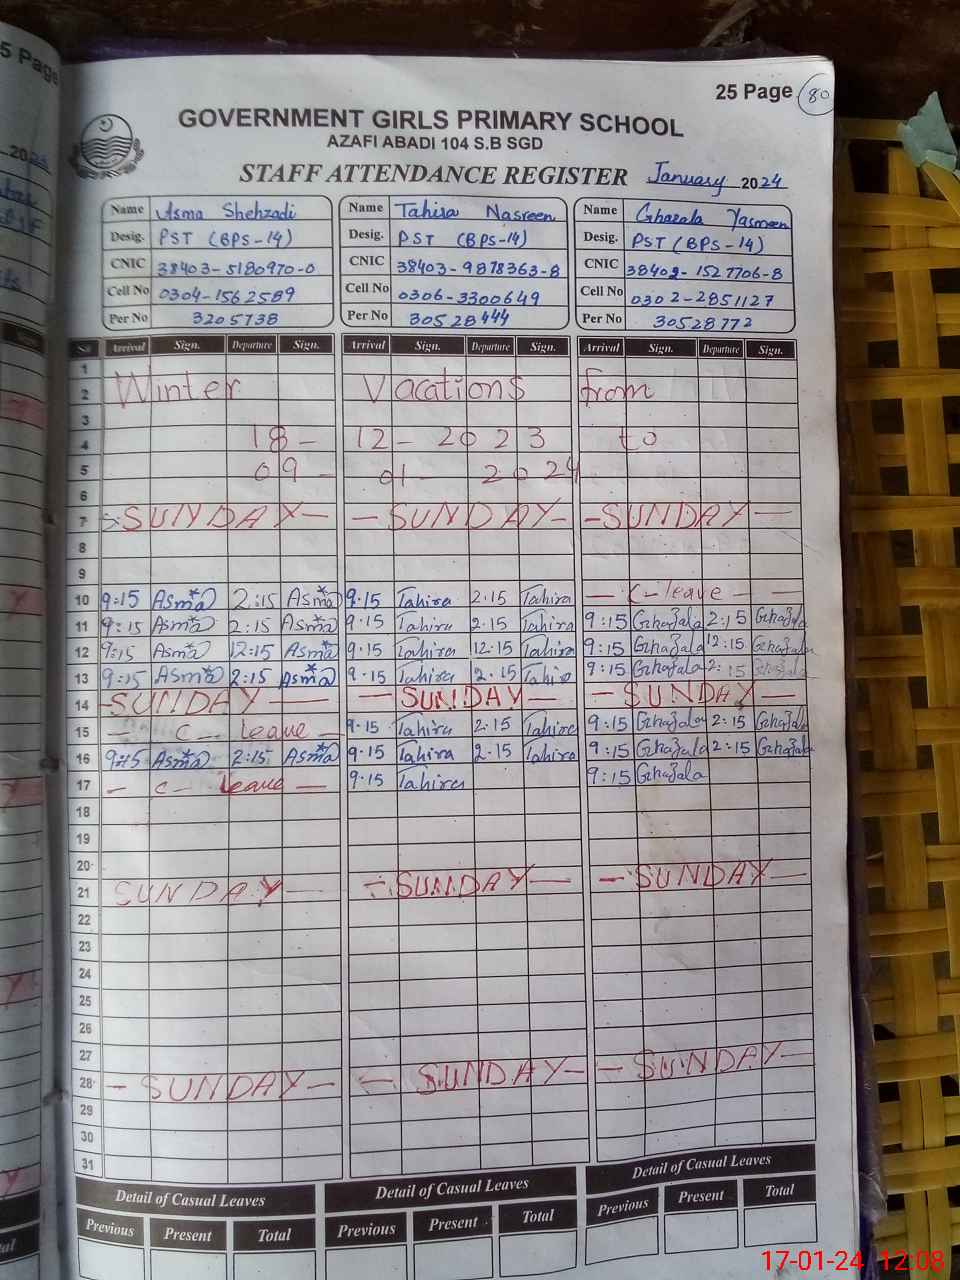 25 Page 80
GOVERNMENT GIRLS PRIMARY SCHOOL
AZAFI ABADI 104 S.B SGD
STAFF ATTENDANCE REGISTER January 2024
Name Asma Shehzadi Name Tahira Nasreen Name Ghazala Yasmeen
Desig. PST (BPS-14) Desig. PST (BPS-14) Desig. PST (BPS-14)
CNIC 38403-5180970-0 CNIC 38403-9878363-8 CNIC 38402-1527706-8
Cell No 0304-1562589 Cell No 0306-3300649 Cell No 0302-2851127
Per No 3205738 Per No 30528444 Per No 30528772
Arrival Sign. Departure Sign. Arrival Sign. Departure Sign. Arrival Sign. Departure Sign.
1
2 Winter Vacations from
3
4 18-12-2023 to
5 09-01-2024
6
7 -SUNDAY- -SUNDAY- -SUNDAY-
8
9
10 9:15 Asma 2:15 Asma 9.15 Tahira 2.15 Tahira - C-leave -
11 9:15 Asma 2:15 Asma 9.15 Tahira 2.15 Tahira 9:15 Ghazala 2:15 Ghazala
12 9:15 Asma 12:15 Asma 9.15 Tahira 12.15 Tahira 9:15 Ghazala 12:15 Ghazala
13 9:15 Asma 2:15 Asma 9.15 Tahira 2.15 Tahira 9:15 Ghazala 2:15 Ghazala
14 -SUNDAY- -SUNDAY- -SUNDAY-
15 - C- leave - 9.15 Tahira 2.15 Tahira 9:15 Ghazala 2:15 Ghazala
16 9:15 Asma 2:15 Asma 9.15 Tahira 2.15 Tahira 9:15 Ghazala 2:15 Ghazala
17 - c- leave - 9.15 Tahira 9:15 Ghazala
18
19
20
21 SUNDAY- -SUNDAY- -SUNDAY-
22
23
24
25
26
27
28 -SUNDAY- -SUNDAY- -SUNDAY-
29
30
31
Detail of Casual Leaves Detail of Casual Leaves Detail of Casual Leaves
Previous Present Total Previous Present Total Previous Present Total
17-01-24 12:08